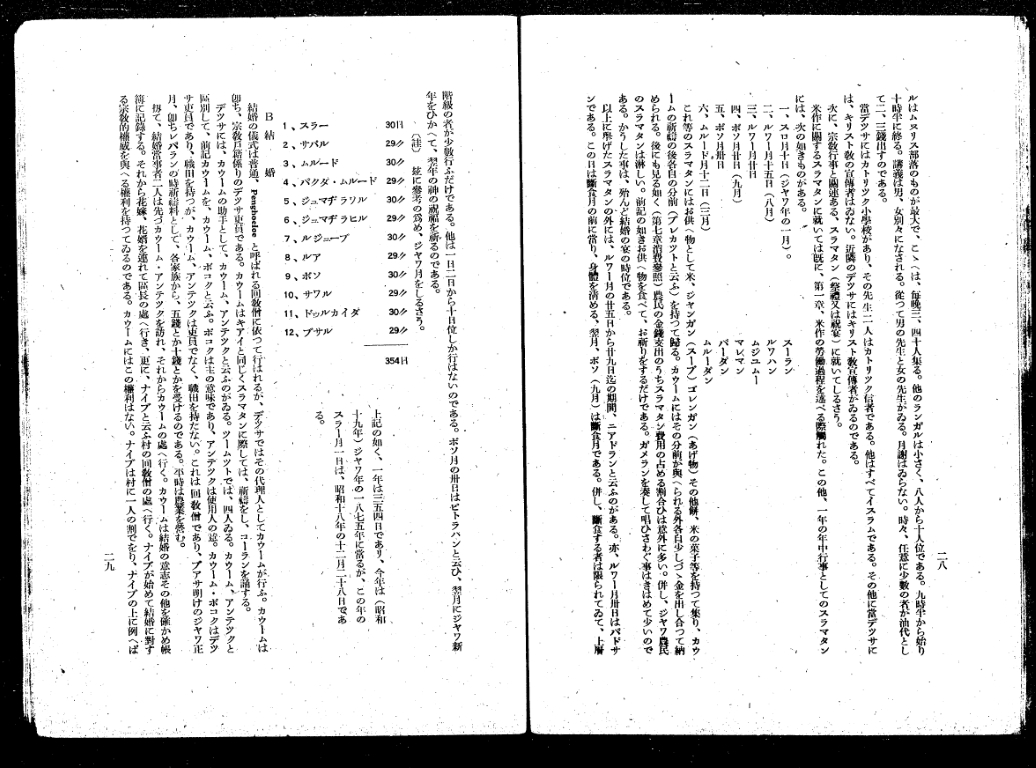 ルはムスリス部落のものが最大で、こゝへは、毎晩三、四十人集る。他のランガルは小さく、八人から十人位である。九時半から始り
十時半に終る。講義は男、女別々になされる。從つて男の先生と女の先生がゐる。月謝はゐらない。時々、任意に少數の者が油代とし
て二、三錢出すのである。
當デツサにはカトリツク小學校があり、その先生二人はカトリツク信者である。他はすべてイスラムである。その他に當デツサに
は、キリスト教の宣傳者はゐない。近隣のデツサにはキリスト教宣傳者がゐるのである。
次に、宗教行事と關連ある、スラマタン（祭禮又は祝宴）に就いてしるさう。
米作に關するスラマタンに就いては既に、第一章、米作の勞働過程を述べる際觸れた。この他、一年の年中行事としてのスラマタン
には、次の如きものがある。
一、スロ月十日（ジヤワ年の一月）。　スーラン
二、ルワー月十五日（八月）　ルワハン
三、ルワー月卅日　ムジユムー
四、ポソ月廿日（九月）　マレマン
五、ポソ月卅日　バーダン
六、ムルード月十二日（三月）　ムルーダン
これ等のスラマタンにはお供へ物として米、ジヤンガン（スープ）ゴレンガン（あげ物）その他餅、米の菓子等を持つて集り、カウ
ームの祈禱の後各自の分前（ブレカツトと云ふ）を持つて歸る。カウームにはその分前が與へられる外各自少しづゝ金を出し合つて納
められる。後にも見る如く（第七章消費參照）農民の金錢支出のうちスラマタン費用の占める割合ひは意外に多い。併し、ジヤワ農民
のスラマタンは淋しい。前記の如きお供へ物を食べて、お祈りをするだけである。ガメランを奏して唱ひさわぐ事はきはめて少いので
ある。かうした事は、殆んど結婚の宴の時位である。
以上に擧げたスラマタンの外には、ルワー月の廿五日から廿九日迄の期間、ニアドランと云ふのがある。亦、ルワー月卅日はパドサ
ンである。この日は斷食月の前に當り、身體を淸める、翌月、ポソ（九月）は斷食月である。併し、斷食する者は限られてゐて、上層
二八
階級の者が少數行ふだけである。他は一日二日から十日位しか行はないのである。ポソ月の卅日はビトラハンと云ひ、翌月にジヤワ新
年をひかへて、翌年の神の祝福を祈るのである。
（註）　玆に參考の爲め、ジヤワ月をしるさう。
1、スラー　30日
2、サパル　29〃
3、ムルード　30〃
4、バクダ・ムルード　29〃
5、ジュマヂラソル　30〃
6、ジュマヂラヒル　29〃
7、ルジェーブ　30〃
8、ルア　29〃
9、ポソ　30〃
10、サワル　29〃
11、ドゥルカイダ　30〃
12、ブサル　29〃
354日
上記の如く、一年は三五四日であり、今年は（昭和
十九年）ジヤワ年の一八七五年に當るが、この年の
スラー月一日は、昭和十八年の十二月二十八日であ
る。
B　結　婚
結婚の儀式は普通、Penghoeloe と呼ばれる回敎僧に依つて行はれるが、デツサではその代理人としてカウームが行ふ。カウームは
卽ち、宗敎戸籍係りのデツサ吏員である。カウームはキアイと同じくスラマタンに際しては、祈禱をし、コーランを誦する。
デツサには、カウームの助手として、カウーム、アンテツクと云ふのがゐる。ツームツトでは、四人ゐる。カウーム、アンテツクと
區別して、前記カウームを、カウーム、ポコクと云ふ。ポコクは主の意味であり、アンテツクは使用人の意。カウーム・ポコクはデツ
サ吏員であり、職田を持つが、カウーム、アンテツクは吏員でなく、職田を持たない。これは回敎僧であり、プアサ明けのジヤワ正
月、卽ちレバランの時祈禱料として、各家族から、五錢とか十錢とかを受けるのである。平時は農業を營む。
扨て、結婚當事者二人は先づカウーム・アンテツクを訪れ、それからカウームの處へ行く。カウームは結婚の意志その他を確かめ帳
簿に記錄する。それから花嫁、花婿を連れて區長の處へ行き、更に、ナイブと云ふ村の回敎僧の處へ行く。ナイブが始めて結婚に對す
る宗敎的權威を與へる權利を持つてゐるのである。カウームにはこの權利はない。ナイブは村に一人の割でをり、ナイブの上に例へば
二九